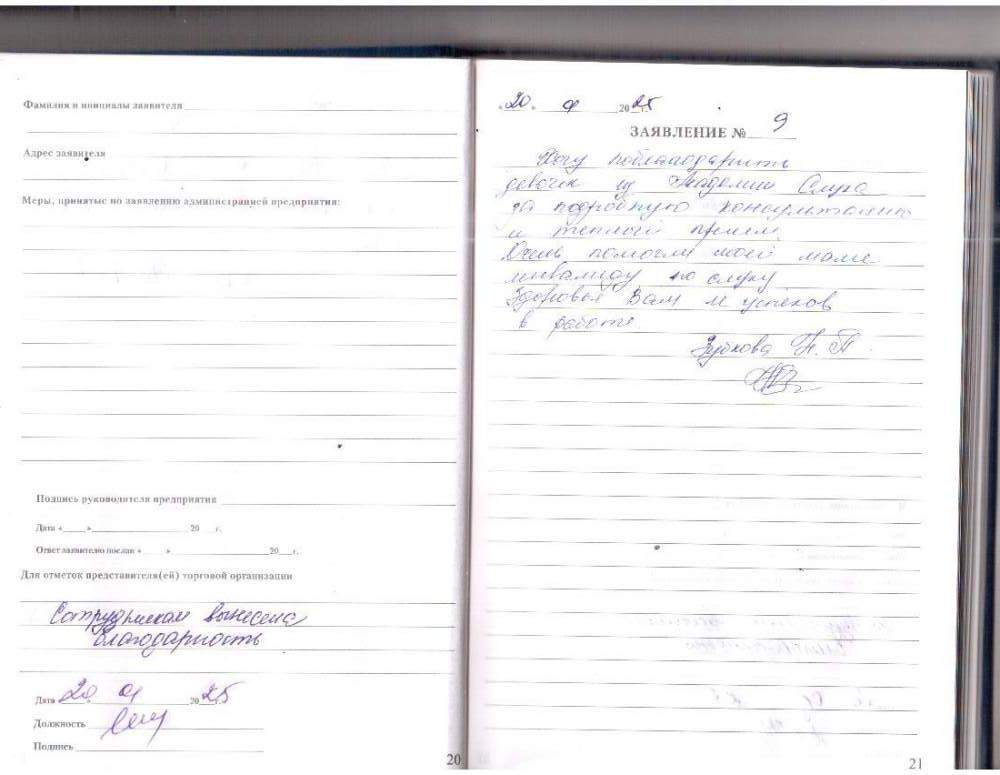 Фамилия и инициалы заявителя
Адрес заявителя
Меры, принятые по заявлению администрацией предприятия:
Подпись руководителя предприятия
Дата « » 20 г.
Ответ заявителю послан « » 20 г.
Для отметок представителя(ей) торговой организации
Сотрудникам вынесена
благодарность
Дата 20 01 2025
Должность
Подпись
20
«20» 01 2025 г.
ЗАЯВЛЕНИЕ № 9
Хочу поблагодарить
девочек из Академии Слуха
за подробную консультацию
и теплый прием.
Очень помогли моей маме
инвалиду по слуху
Здоровья Вам и успехов
в работе
Зубкова Н. П.
21